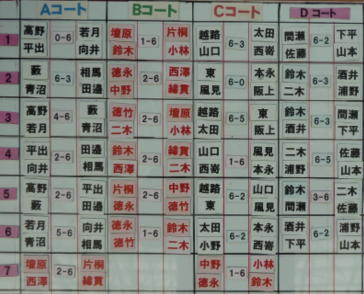 Aコート Bコート Cコート Dコート
1 高野 平出 0-6 若月 向井 壇原 鈴木 1-6 片桐 小林 越路 山口 6-3 太田 西嵜 間瀬 佐藤 6-2 下平 山本
2 藪 青沼 6-3 相馬 田邉 徳永 中野 2-6 西澤 縁貫 東 風見 6-0 本永 阪上 鈴木 酒井 6-3 二木 浦野
3 高野 若月 4-6 藪 青沼 徳竹 二木 2-6 壇原 小林 越路 太田 6-5 東 阪上 鈴木 酒井 6-3 間瀬 下平
4 平出 向井 2-6 田邉 相馬 徳永 鈴木 2-6 西澤 縁貫 山口 西嵜 1-6 風見 本永 二木 浦野 6-5 佐藤 山本
5 高野 藪 2-6 平出 田邉 片桐 徳永 2-6 中野 徳竹 越路 東 6-2 山口 風見 間瀬 鈴木 3-6 二木 佐藤
6 若月 青沼 5-6 向井 相馬 徳永 徳竹 1-6 鈴木 二木 太田 小野 6-2 本永 西嵜 酒井 下平 6-2 浦野 山本
7 壇原 西澤 2-6 片桐 縁貫 中野 徳永 1-6 小林 鈴木